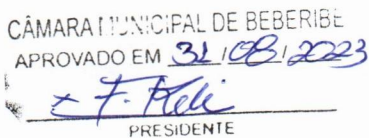 CÂMARA MUNICIPAL DE BEBERIBE
APROVADO EM 31/08/2023
PRESIDENTE